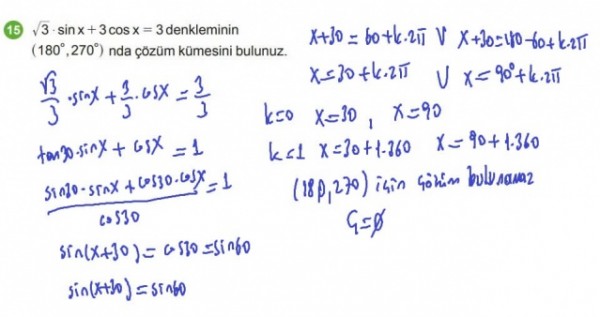 15 √3 · sin x + 3 cos x = 3 denkleminin
(180°, 270°) nda çözüm kümesini bulunuz.
√3/3 · sinx + 3/3 · cosx = 3/3
tan30·sinx + cosx = 1
(sin30·sinx + cos30·cosx)/cos30 = 1
sin(x+30) = cos30 = sin60
sin(x+30) = sin60
x+30 = 60+k.2π V x+30=180-60+k.2π
x = 30+k.2π V x=90°+k.2π
k=0 x=30, x=90
k=1 x=30+1.360 x=90+1.360
(180,270) için çözüm bulunamaz
Ç=∅